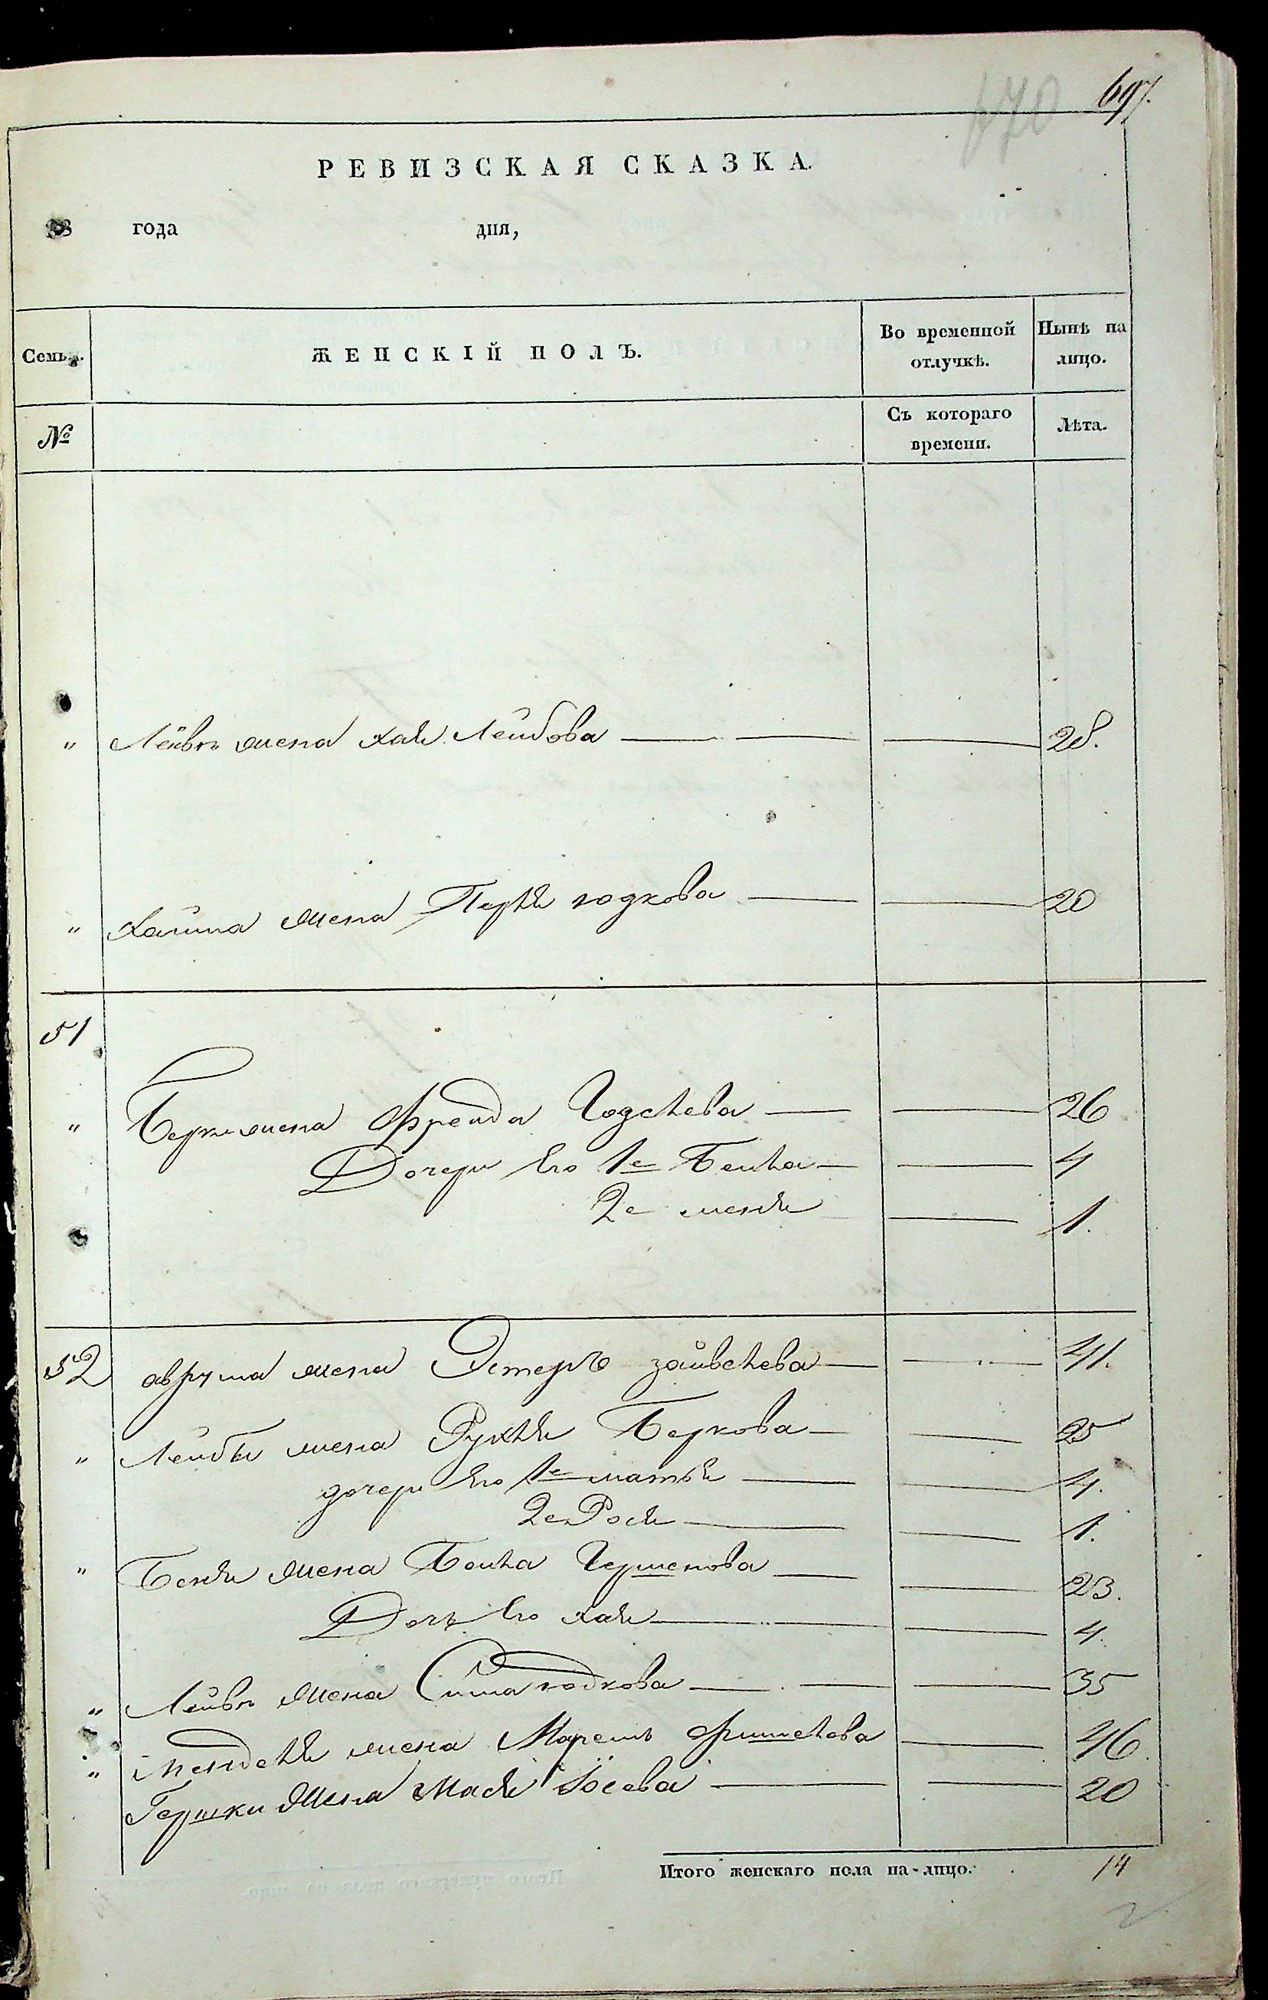 697.
670
РЕВИЗСКАЯ СКАЗКА.
года дня,
Семья. ЖЕНСКІЙ ПОЛЪ. Во временной отлучкѣ. Нынѣ на лицо.
№ Съ котораго времени. Лѣта.
" жена Хая Лейбова 28.
" Хаима жена Перля Юдкова 20
51
" Берки жена Фрейда 26
Дочери Его 1е Бейла 4
2е Менля 1.
52 Аврума жена Эстеръ Зайвелева 41.
" Лейбы жена Рухля Беркова 25
дочери Его 1е Матля 4.
2е Рося 1.
" жена Бейла Гершкова 23.
Дочь Его Хая 4.
" жена Сима Юдкова 35
" Менделя жена Маремъ Фишелева 46.
Гершки жена Мася Іосева 20
Итого женскаго пола на-лицо. 14